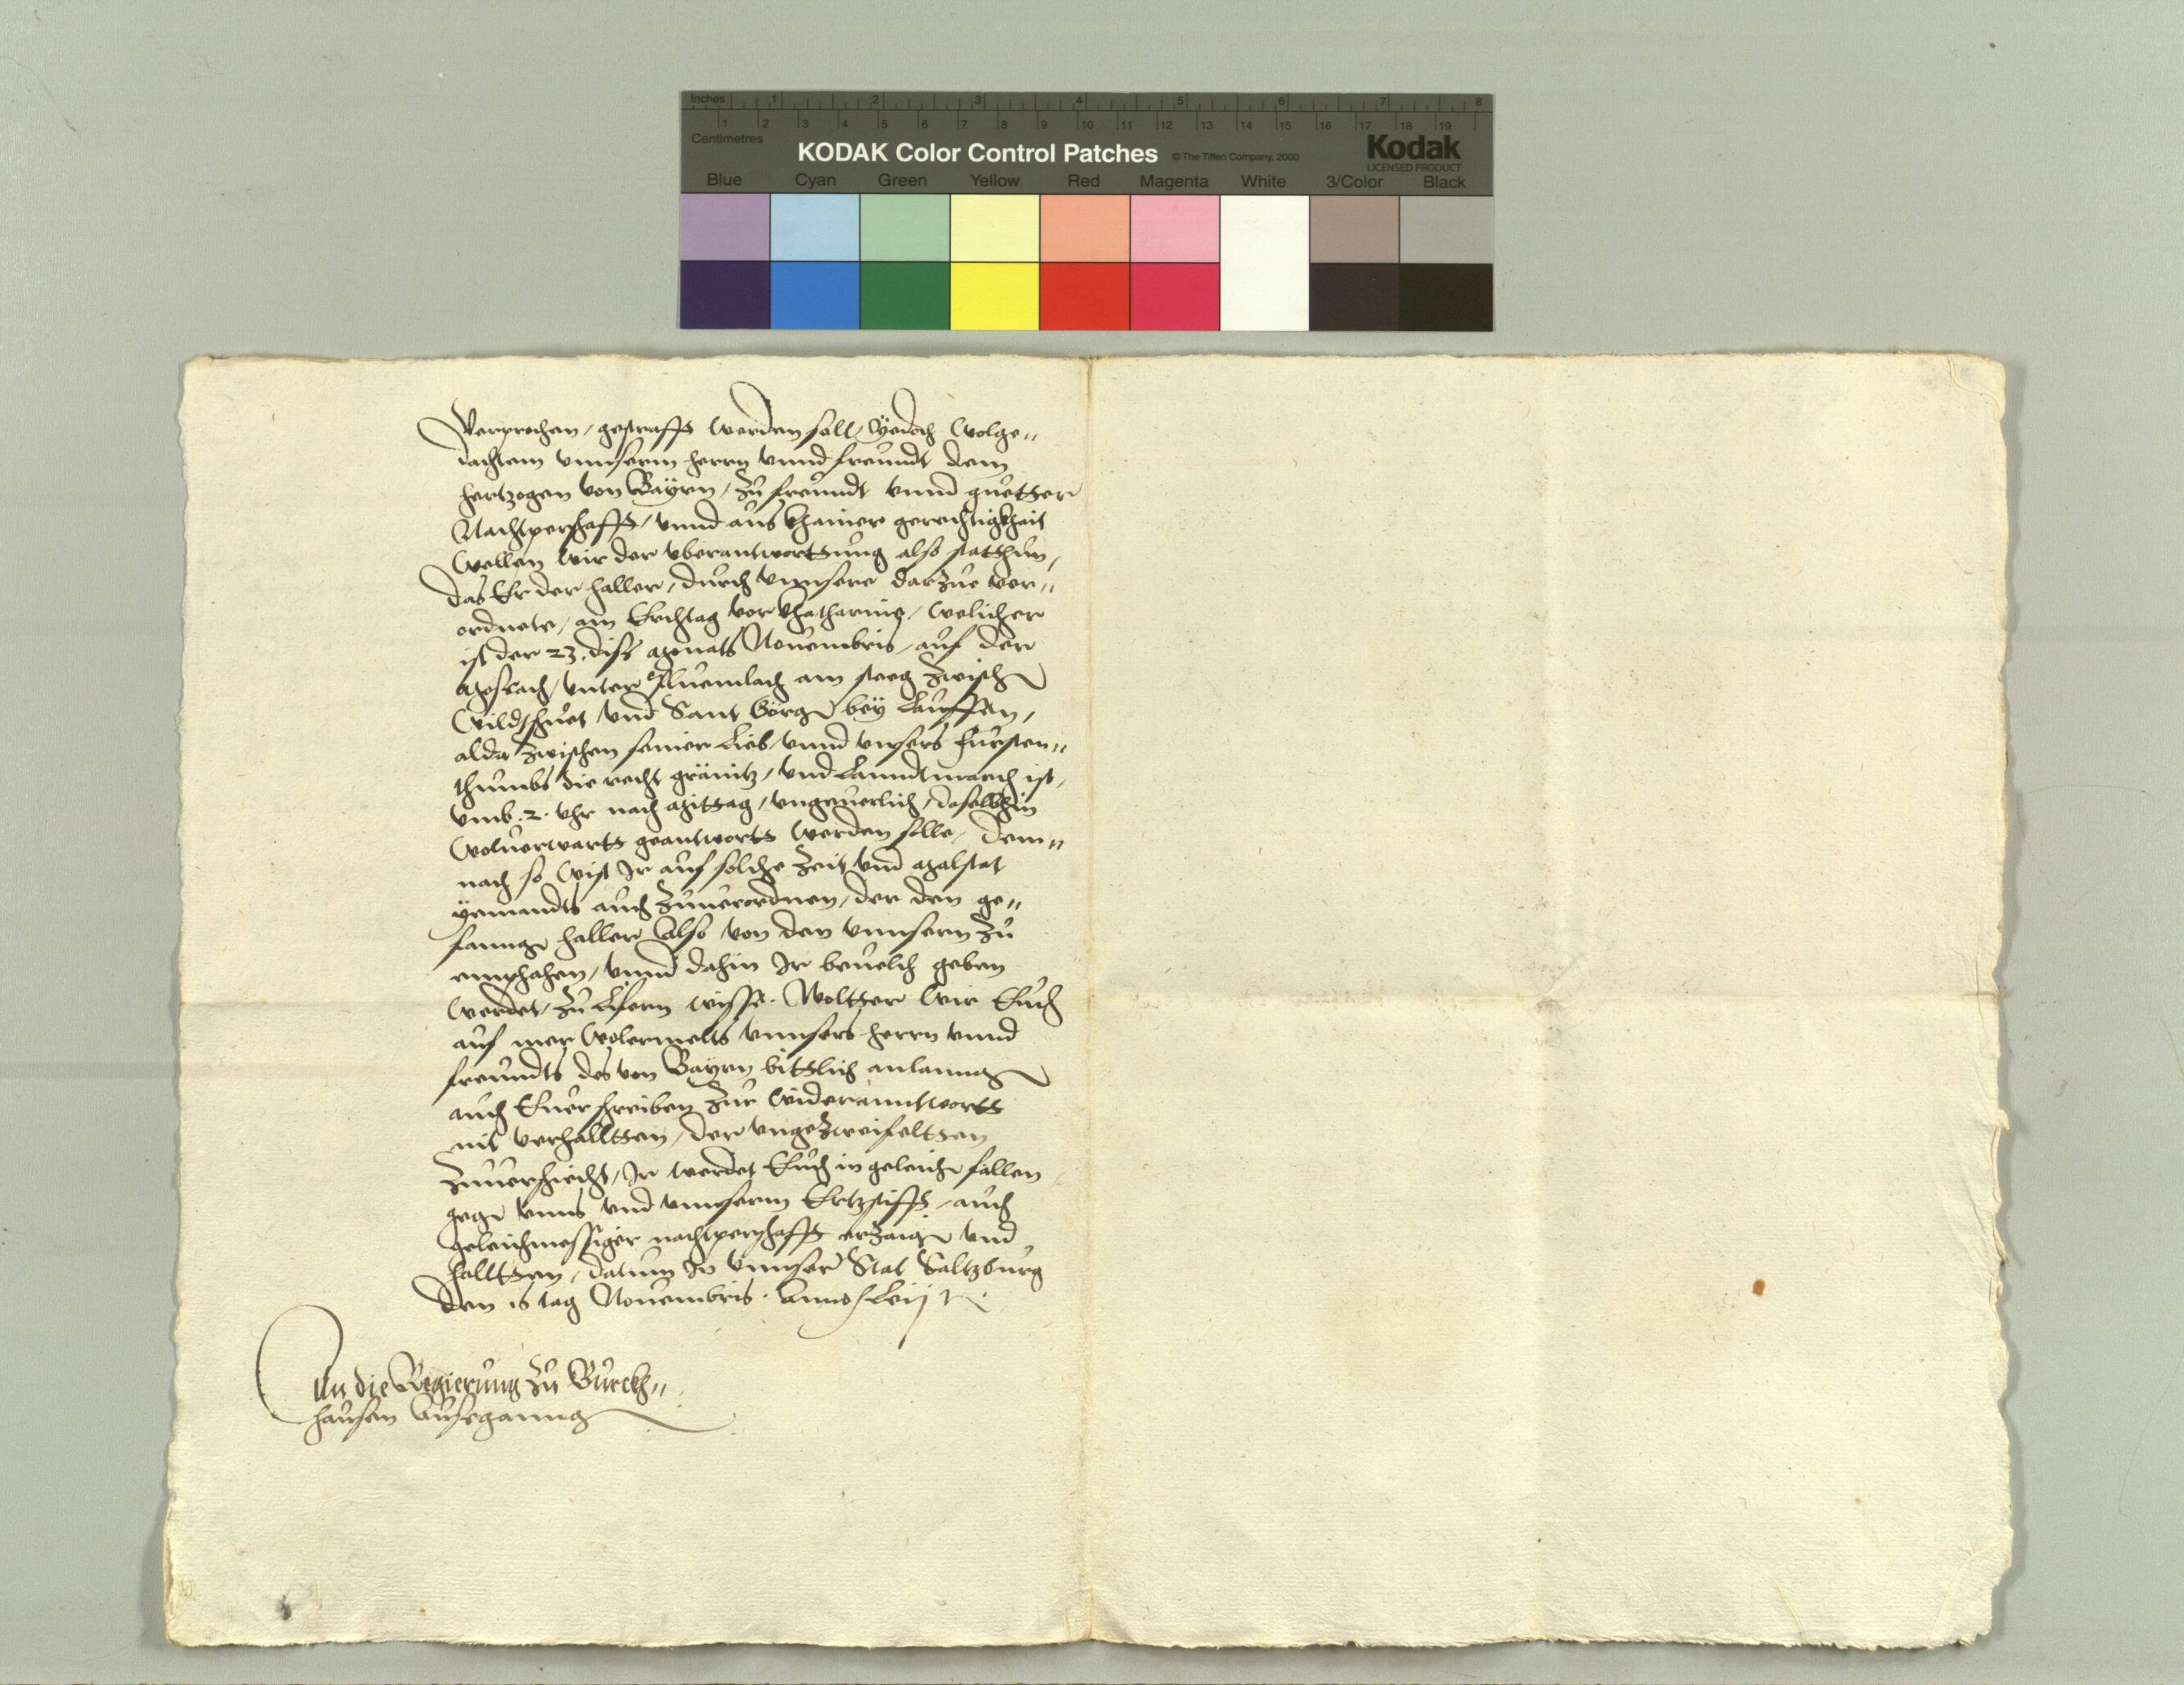 Inches 1 2 3 4 5 6 7 8
1 2 3 4 5 6 7 8 9 10 11 12 13 14 15 16 17 18 19
Centimetres
KODAK Color Control Patches © The Tiffen Company, 2000 Kodak
LICENSED PRODUCT
Blue Cyan Green Yellow Red Magenta White 3/Color Black
Verprochen, gestrafft werden soll, yedoch wolge„
dachtem vnnserm herrn vnnd freundt dem
hertzogen von Bayrn, zu freundt vnnd guetter
Nachtperschafft, vnnd aus khainer gerechtigkhait
wellen wir der vberantwortung also statthun,
das Er der haller, durch vnnsere darzue ver„
ordnete, am Erchtag vor Khatharine, welicher
ist der 23. diss Monats Nouembris, auf der
Mosach, vnter am steeg zwischen
Wildtshuet vnd Sant Görgen bey Lauffen,
alda zwischen seiner Lieb, vnnd vnsers Fursten„
thumbs die recht gränitz, vnd Lanndtmarch ist,
vmb .2. vhr nach Mittag, vngeuerlich, daselbhin
woluerwart geantwort werden solle, dem„
nach so wist Ir auf solche zeit vnd Malstat
yemandts auch zuuerordnen, der den ge„
fanngen haller also von den vnnsern zu
emphahen, vnnd dahin Ir beuelch geben
werdet, zu lifern wisse. Wolten wir Euch
auf mer wolermelts vnnsers herrn vnnd
freundts des von Bayrn bittlich anlanngen
auch Euer schreiben zur widerantwort
nit verhallten, der vngezweifelten
zuuersicht, Ir werdet Euch in geleichen fallen
gegen vnns vnd vnnserm Ertzstifft, auch
geleichmessiger nachtperschafft erzaigen vnd
hallten, datum In vnnser Stat Saltzburg
den 18 tag Nouembris. Anno
An die Regierung zu Burckh„
hausen Ausgegangen